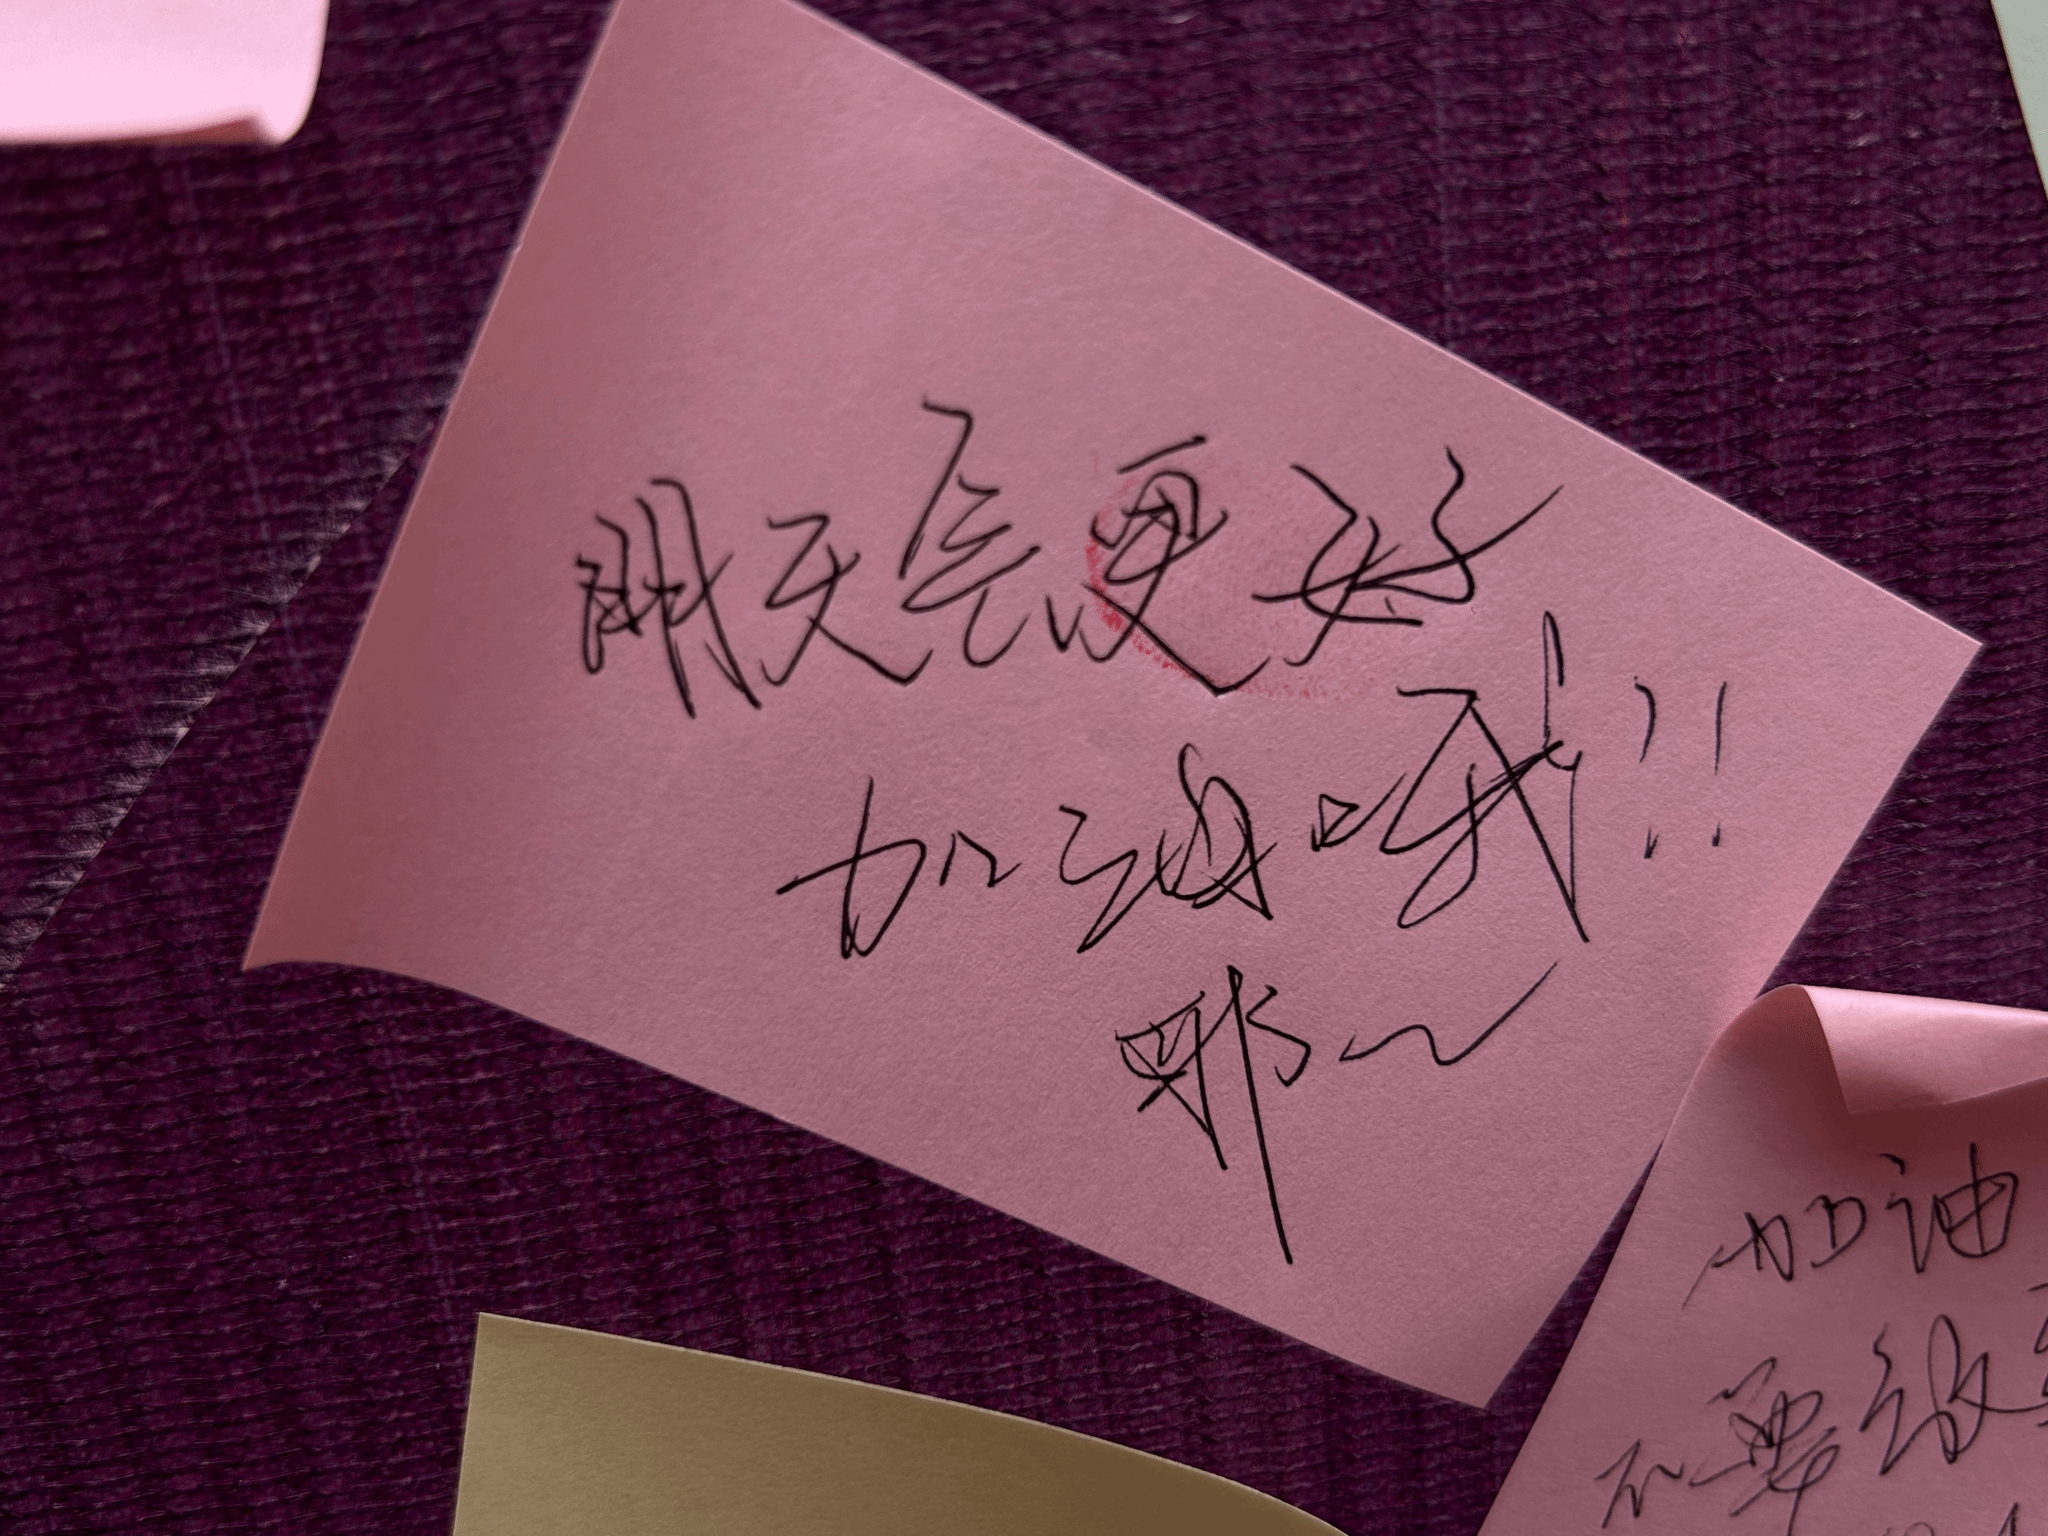 明天会更好
加油哦！！
耶~
加油
不要放弃